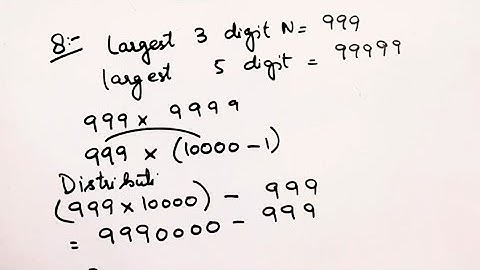 8:- Largest 3 digit N= 999
largest 5 digit = 99999
999 x 9999
999 x (10000-1)
Distributi
(999x10000) - 999
= 9990000 - 999